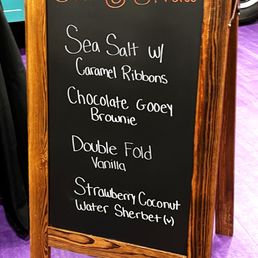 Sea Salt w/
Caramel Ribbons
Chocolate Gooey
Brownie
Double Fold
Vanilla
Strawberry Coconut
Water Sherbet (v)